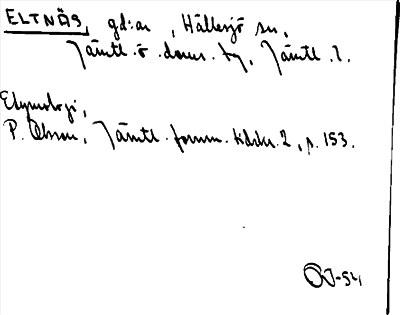 ELTNÄS, gd:ar, Hällesjö sn,
Jämtl. ö. doms. fg, Jämtl. l.
Etymologi,
P. Olsson, Jämtl. fornm. tidskr. 2, p. 153.
OJ-54